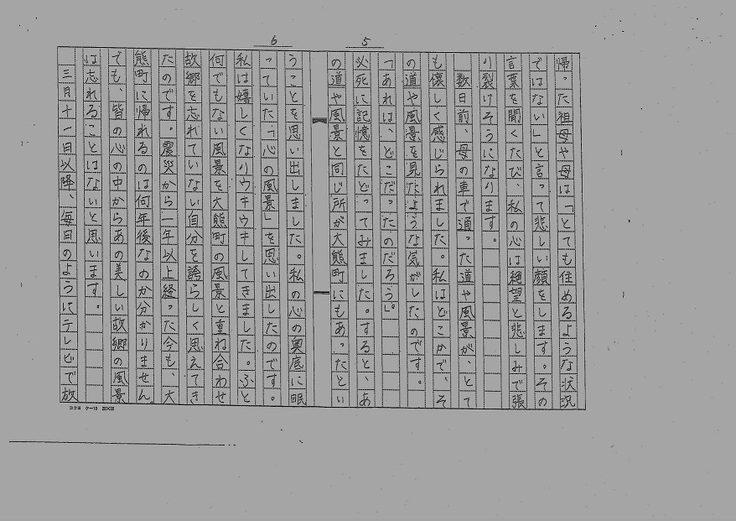 5
帰った祖母や母は「とても住めるような状況
ではない」と言って悲しい顔をします。その
言葉を聞くたび、私の心は絶望と悲しみで張
り裂けそうになります。
数日前、母の車で通った道や風景が、とて
も懐しく感じられました。私はどこかで、そ
の道や風景を見たような気がしたのです。
「あれは、どこだったのだろう」。
必死に記憶をたどってみました。すると、あ
の道や風景と同じ所が大熊町にもあったとい
6
うことを思い出しました。私の心の奥底に眠
っていた「心の風景」を思い出したのです。
私は嬉しくなりウキウキしてきました。ふと
何でもない風景を大熊町の風景と重ね合わせ
故郷を忘れていない自分を誇らしく思えてき
たのです。震災から一年以上経った今も、大
熊町に帰れるのは何年後なのか分かりません
でも、皆の心の中からあの美しい故郷の風景
は忘れることはないと思います。
三月十一日以降、毎日のようにテレビで放
コクヨ ケー10 20×20